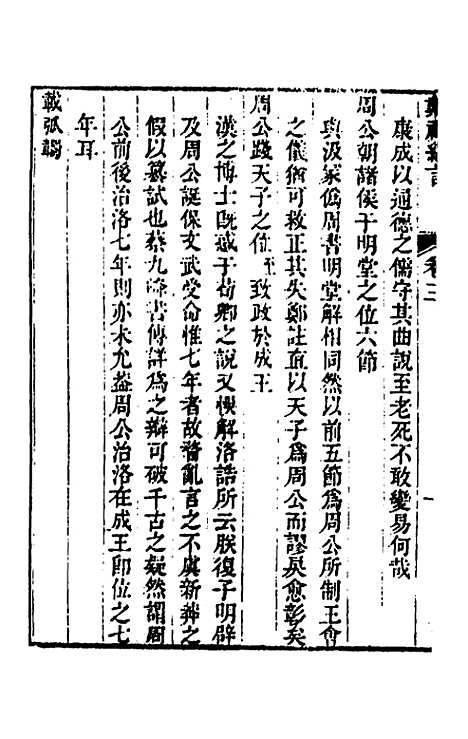 卷三
康成以通德之儒守其曲說至老死不敢變易何哉
周公朝諸侯于明堂之位六節
與汲冢僞周書明堂解相同然以前五節爲周公所制王會
之儀猶可救正其失鄭註直以天子爲周公而謬戾愈彰矣
周公踐天子之位至致政於成王
漢之博士旣惑于荀卿之說又悞解洛誥所云朕復子明辟
及周公誕保文武受命惟七年者故瞀亂言之不虞新莽之
假以藉試也蔡九峰書傳詳爲之辯可破千古之疑然謂周
公前後治洛七年則亦未允葢周公治洛在成王卽位之七
年耳
載弧韣